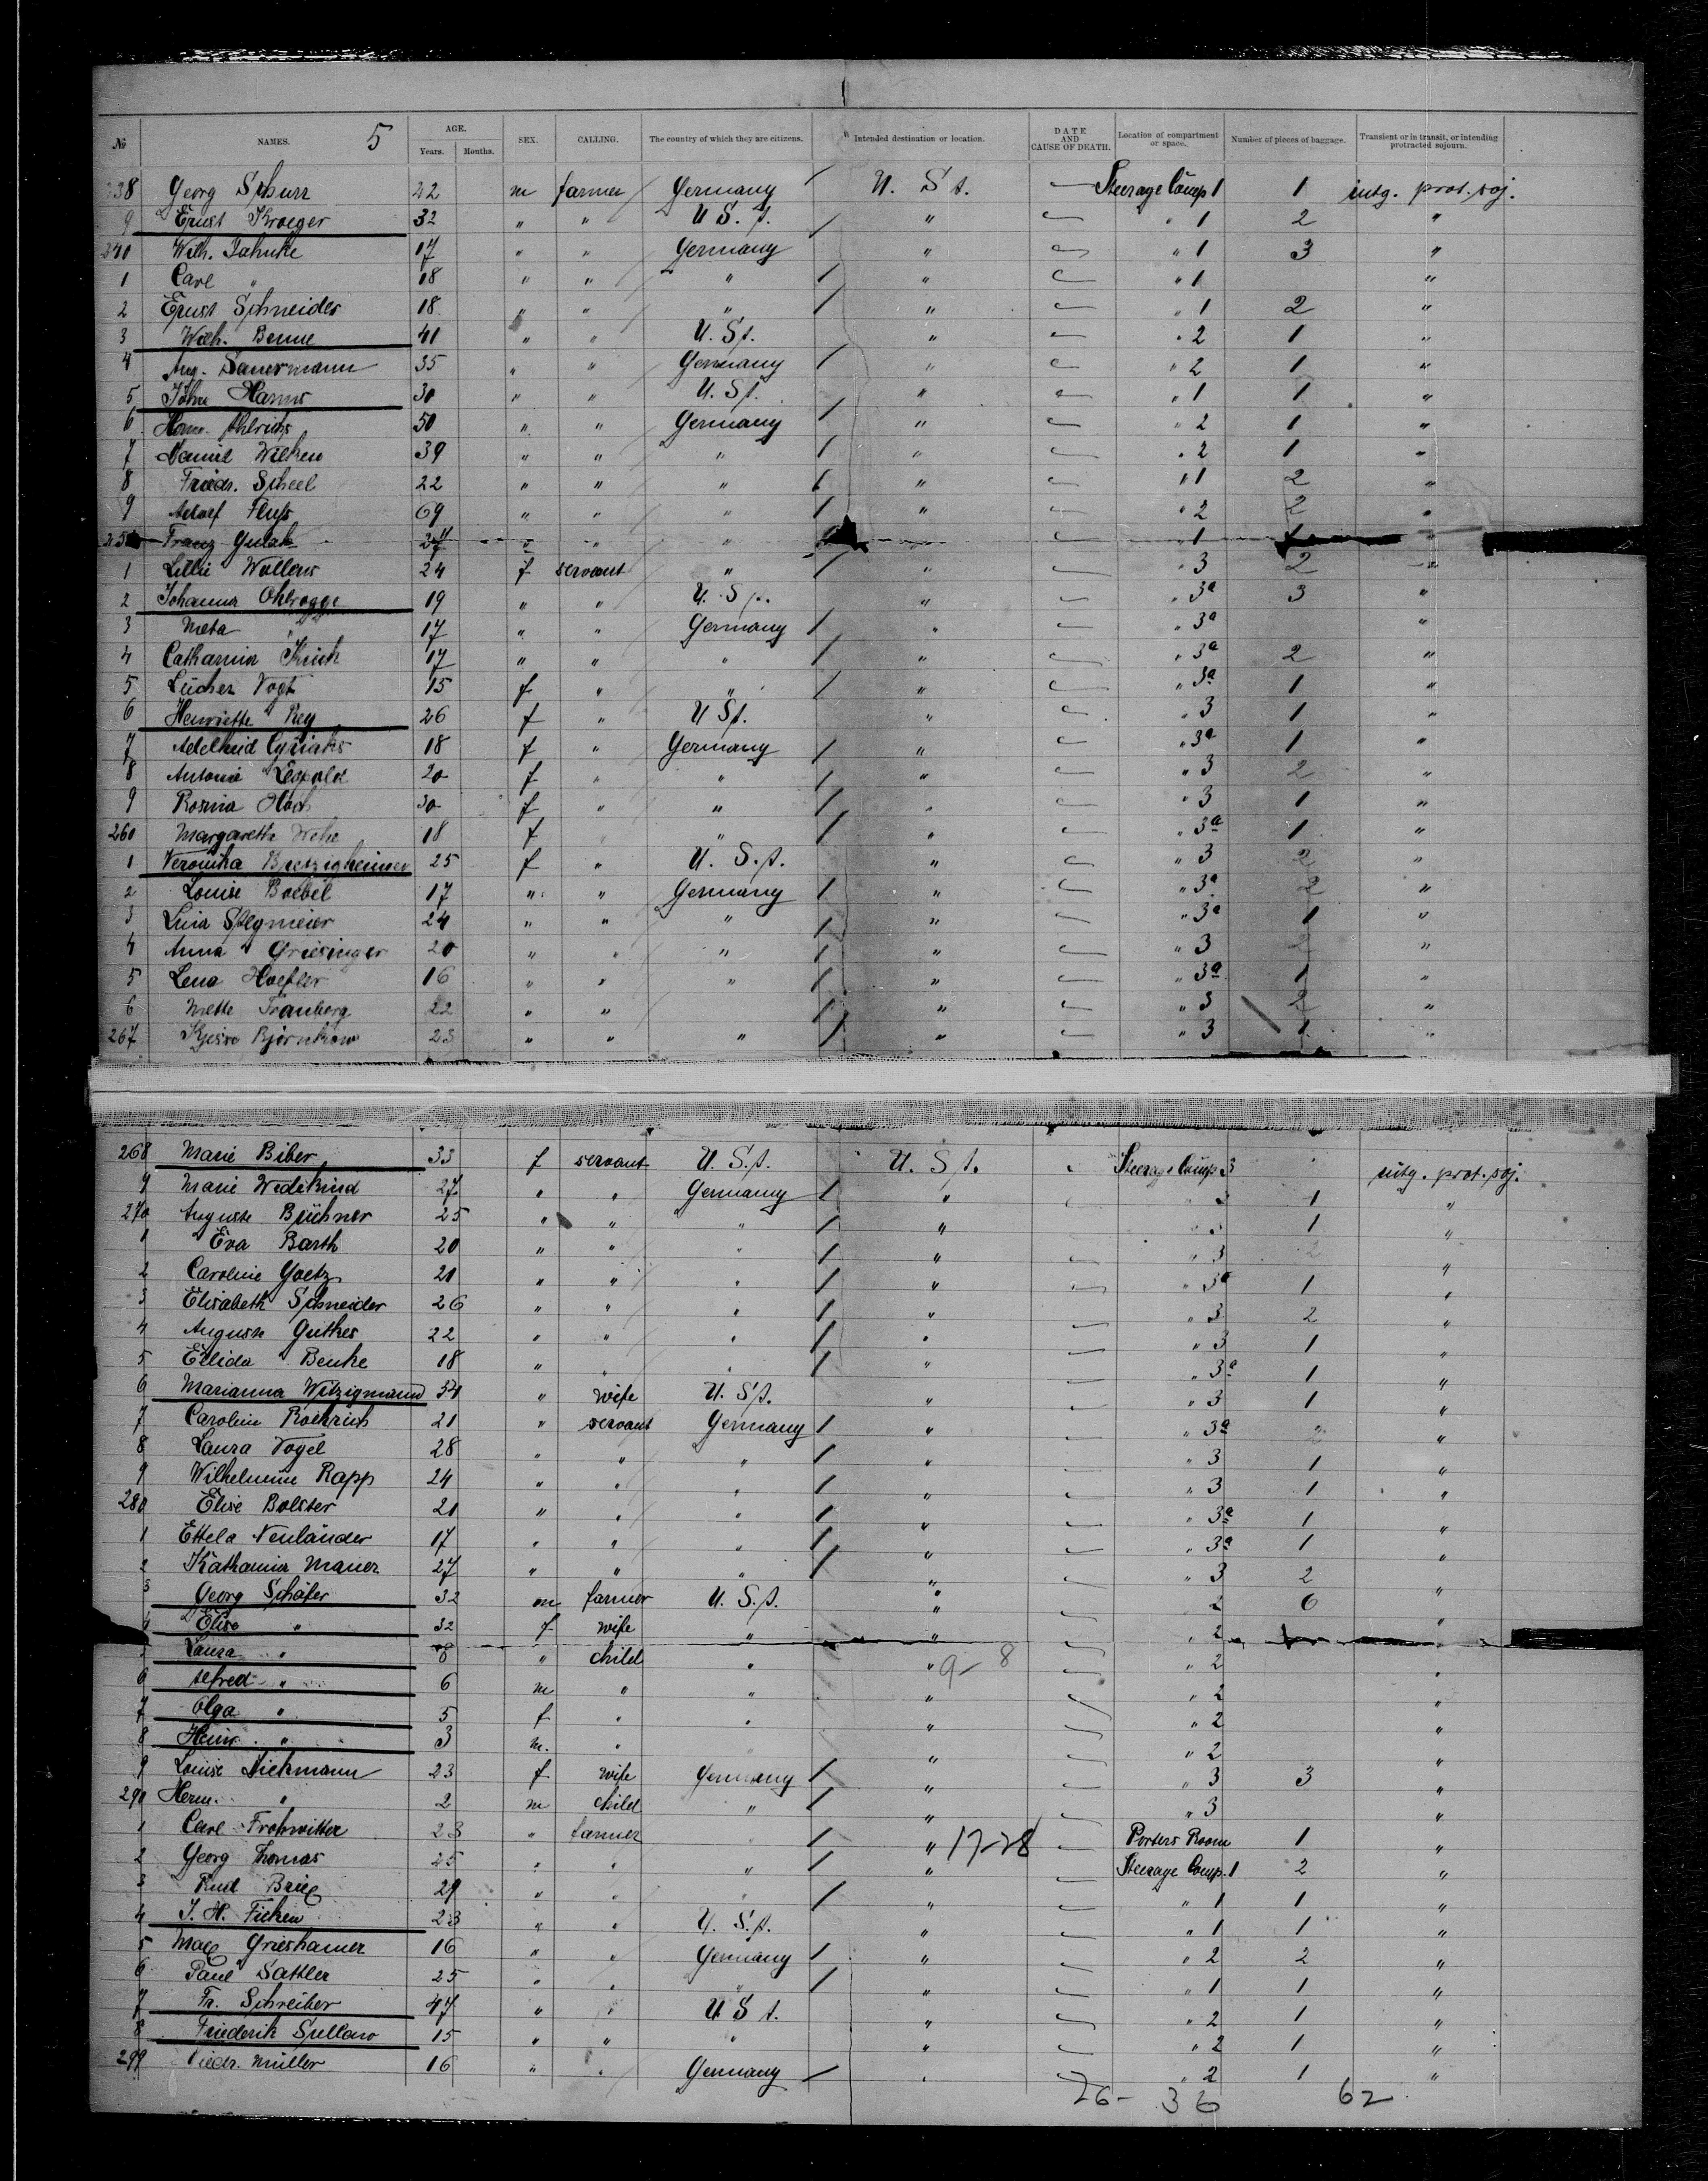 5
№ NAMES. AGE. Years. Months. SEX. CALLING. The country of which they are citizens. Intended destination or location. DATE AND CAUSE OF DEATH. Location of compartment or space. Number of pieces of baggage. Transient or in transit, or intending protracted sojourn.
238 Georg Schurr 22 m farmer Germany U. St. Steerage Comp 1 1 intg. prot. soj.
9 Ernst Kroeger 32 " " U. St. " " 1 2 "
240 Wilh. Jahnke 17 " " Germany " " 1 3 "
1 Carl " 18 " " " " " 1 "
2 Ernst Schneider 18 " " " " " 1 2 "
3 Wilh. Benne 41 " " U. St. " " 2 1 "
4 Aug. Sauermann 35 " " Germany " " 2 1 "
5 John Harms 30 " " U. St. " " 1 1 "
6 Herm. Ahlrichs 50 " " Germany " " 2 1 "
7 Daniel Wilken 39 " " " " " 2 1 "
8 Friedr. Scheel 22 " " " " " 1 2 "
9 Adolf 69 " " " " " 2 2 "
Franz " " " " 1 1
1 Lillie Wollens 24 f servant " " " 3 2 "
2 Johanna Ohlrogge 19 " " U. St. " " 3a 3 "
3 Meta " 17 " " Germany " " 3a "
4 Catharina 17 " " " " " 3a 2 "
5 Vogt 15 f " " " " 3a 1 "
6 Henriette Rey 26 f " U. St. " " 3 1 "
7 Adelheid Cyriaks 18 f " Germany " " 3a 1 "
8 Antonie Leopold 20 f " " " " 3 2 "
9 Rosina Hoch 30 f " " " " 3 1 "
260 Margarethe 18 f " " " 3a 1 "
1 Veronika Bretzigheimer 25 f " U. St. " " 3 2 "
2 Louise Boebel 17 " " Germany " " 3a 2 "
3 Lina Stegmeier 24 " " " " " 3a 1 "
4 Anna Griesinger 20 " " " " " 3 2 "
5 Lena Hoefler 16 " " " " " 3a 1 "
6 Mette Tranberg 22 " " " " 3 2 "
267 Björnkow 23 " " " " " 3 1 "
268 Marie Biber 33 f servant U. St. U. St. Steerage Comp 3 intg. prot. soj.
9 Marie Wedekind 27 " " Germany " " 3 1 "
270 Auguste Büchner 25 " " " " " 3 1 "
1 Eva Barth 20 " " " " " 3 2 "
2 Caroline Goetz 21 " " " " " 3a 1 "
3 Elisabeth Schneider 26 " " " " " 3 2 "
4 Auguste Guthes 22 " " " " " 3 1 "
5 Ellida Benke 18 " " " " " 3a 1 "
6 Marianna Witzigmann 34 " wife U. St. " " 3 1 "
7 Caroline Roehrich 21 " servant Germany " " 3a "
8 Laura Vogel 28 " " " " " 3 1 "
9 Wilhelmine Rapp 24 " " " " " 3 1 "
280 Elise Bolster 21 " " " " " 3a 1 "
1 Ettela Neuländer 17 " " " " " 3a 1 "
2 Katharina Maner 27 " " " " " 3 2 "
3 Georg Schäfer 32 m farmer U. St. " 2 6 "
4 Elise " 32 f wife " " " 2 "
5 Laura " 8 " child " " " 2
9 - 8
6 Alfred " 6 m " " " " 2 "
7 Olga " 5 f " " " " 2 "
8 Heinr. " 3 m. " " " 2 "
9 Louise Diekmann 23 f wife Germany " " 3 3 "
290 Herm. " 2 m child " " " 3 "
1 Carl Frohwitter 23 " farmer " 17-28 Porters Room 1 "
2 Georg Thomas 25 " " " " Steerage Comp. 1 2 "
3 Rud 29 " " " " " 1 1 "
4 J. H. Ficken 23 " " U. St. " " 1 1 "
5 Max Grieshamer 16 " " Germany " " 2 2 "
6 Paul Sattler 25 " " " " " 1 1 "
7 Fr. Schreiber 47 " " U. St. " " 2 1 "
8 Friederik 15 " " " " " 2 1 "
299 Diedr. Müller 16 " " Germany " " 2 1 "
26 - 36 62